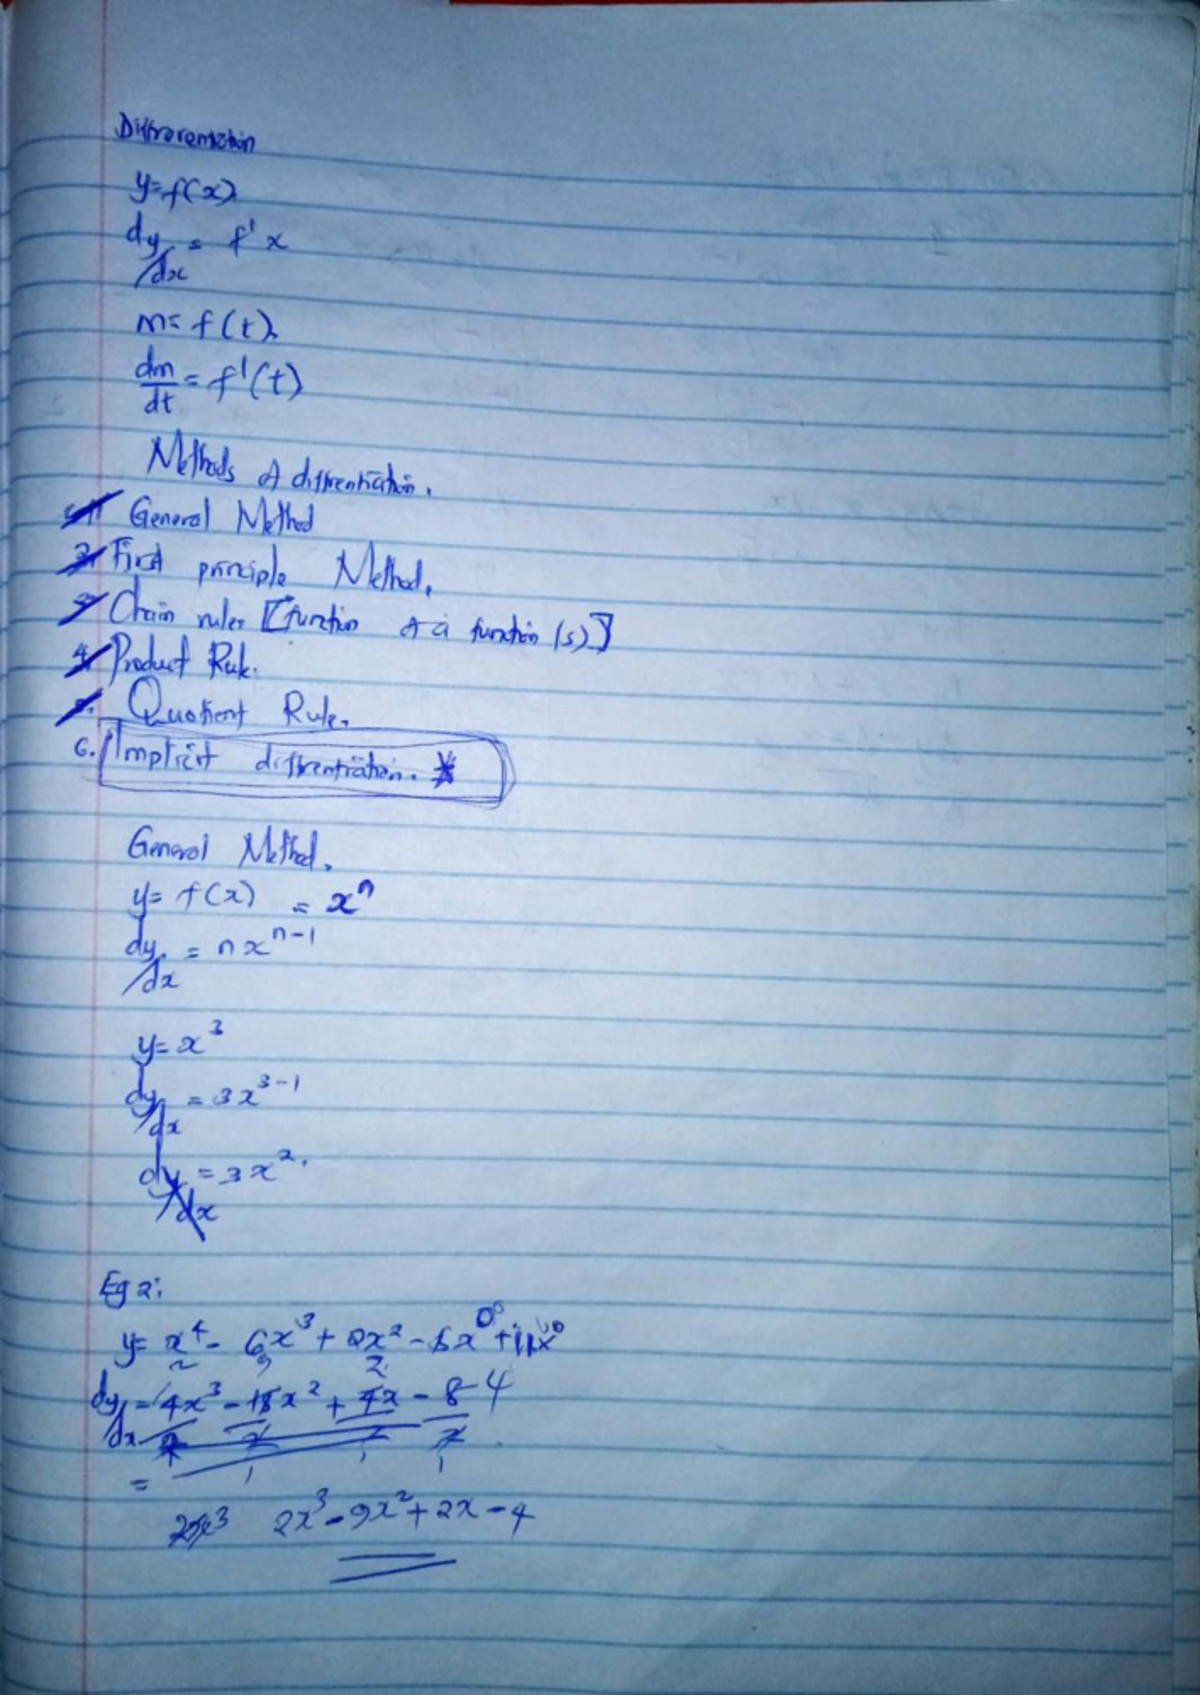 Diffrerentiation
y=f(x)
dy/dx = f'x
m= f(t).
dm/dt = f'(t)
Methods of diffrentiation.
General Method
2. First principle Method.
3. Chain rules [function of a function (s)]
4. Product Rule.
5. Quotient Rule.
6. Implicit diffrentiation. *
General Method.
y= f(x) = xⁿ
dy/dx = nxⁿ⁻¹
y= x³
dy/dx = 3x³⁻¹
dy/dx = 3x².
Eg 2:
y= x⁴ - 6x³ +
dy/dx = 4x³ - 18x² + 4x - 8 4
=
2x³ - 9x² + 2x - 4